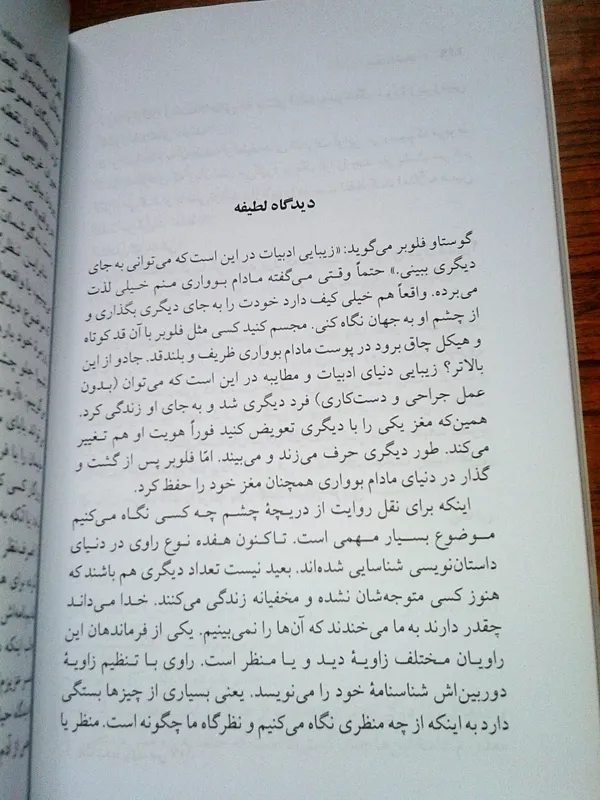 دیدگاه لطیفه
گوستاو فلوبر می‌گوید: «زیبایی ادبیات در این است که می‌توانی به جای
دیگری ببینی.» حتماً وقتی می‌گفته مادام بوواری منم خیلی لذت
می‌برده. واقعاً هم خیلی کیف دارد خودت را به جای دیگری بگذاری و
از چشم او به جهان نگاه کنی. مجسم کنید کسی مثل فلوبر با آن قد کوتاه
و هیکل چاق برود در پوست مادام بوواری ظریف و بلندقد. جادو از این
بالاتر؟ زیبایی دنیای ادبیات و مطایبه در این است که می‌توان (بدون
عمل جراحی و دست‌کاری) فرد دیگری شد و به‌جای او زندگی کرد.
همین‌که مغز یکی را با دیگری تعویض کنید فوراً هویت او هم تغییر
می‌کند. طور دیگری حرف می‌زند و می‌بیند. امّا فلوبر پس از گشت و
گذار در دنیای مادام بوواری همچنان مغز خود را حفظ کرد.
اینکه برای نقل روایت از دریچهٔ چشم چه کسی نگاه می‌کنیم
موضوع بسیار مهمی است. تاکنون هفده نوع راوی در دنیای
داستان‌نویسی شناسایی شده‌اند. بعید نیست تعداد دیگری هم باشند که
هنوز کسی متوجه‌شان نشده و مخفیانه زندگی می‌کنند. خدا می‌داند
چقدر دارند به ما می‌خندند که آن‌ها را نمی‌بینیم. یکی از فرماندهان این
راویان مختلف زاویهٔ دید و یا منظر است. راوی با تنظیم زاویهٔ
دوربین‌اش شناسنامهٔ خود را می‌نویسد. یعنی بسیاری از چیزها بستگی
دارد به اینکه از چه منظری نگاه می‌کنیم و نظرگاه ما چگونه است. منظر یا